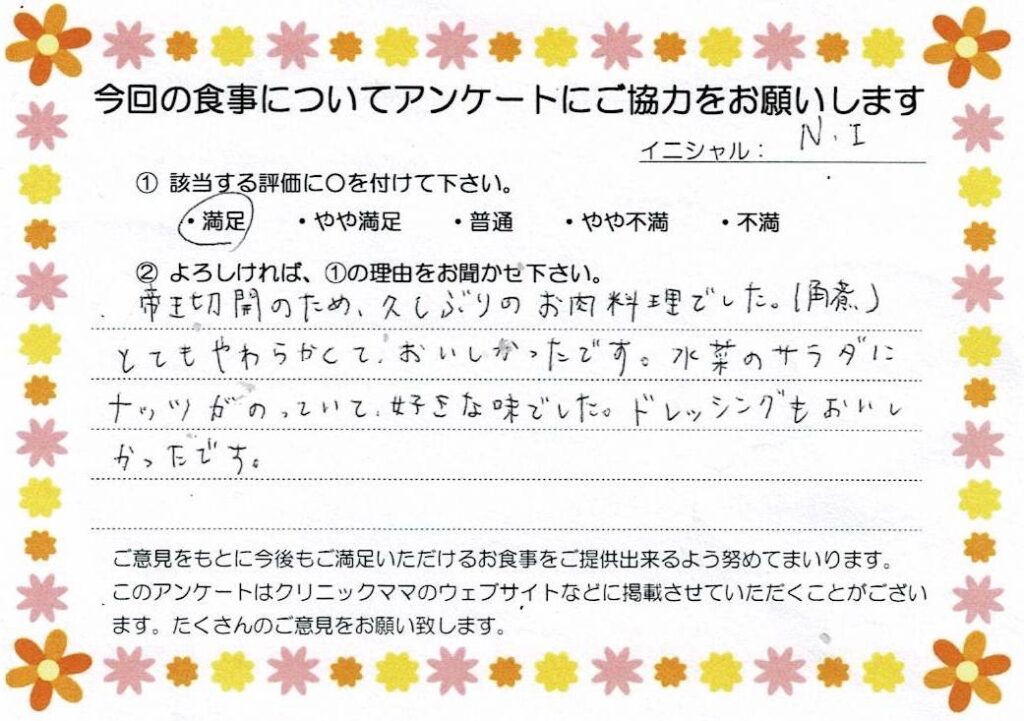 今回の食事についてアンケートにご協力をお願いします
イニシャル： N.I
① 該当する評価に〇を付けて下さい。
・満足 ・やや満足 ・普通 ・やや不満 ・不満
② よろしければ、①の理由をお聞かせ下さい。
帝王切開のため、久しぶりのお肉料理でした。(角煮)
とてもやわらかくて、おいしかったです。水菜のサラダに
ナッツがのっていて、好きな味でした。ドレッシングもおいし
かったです。
ご意見をもとに今後もご満足いただけるお食事をご提供出来るよう努めてまいります。
このアンケートはクリニックママのウェブサイトなどに掲載させていただくことがござい
ます。たくさんのご意見をお願い致します。